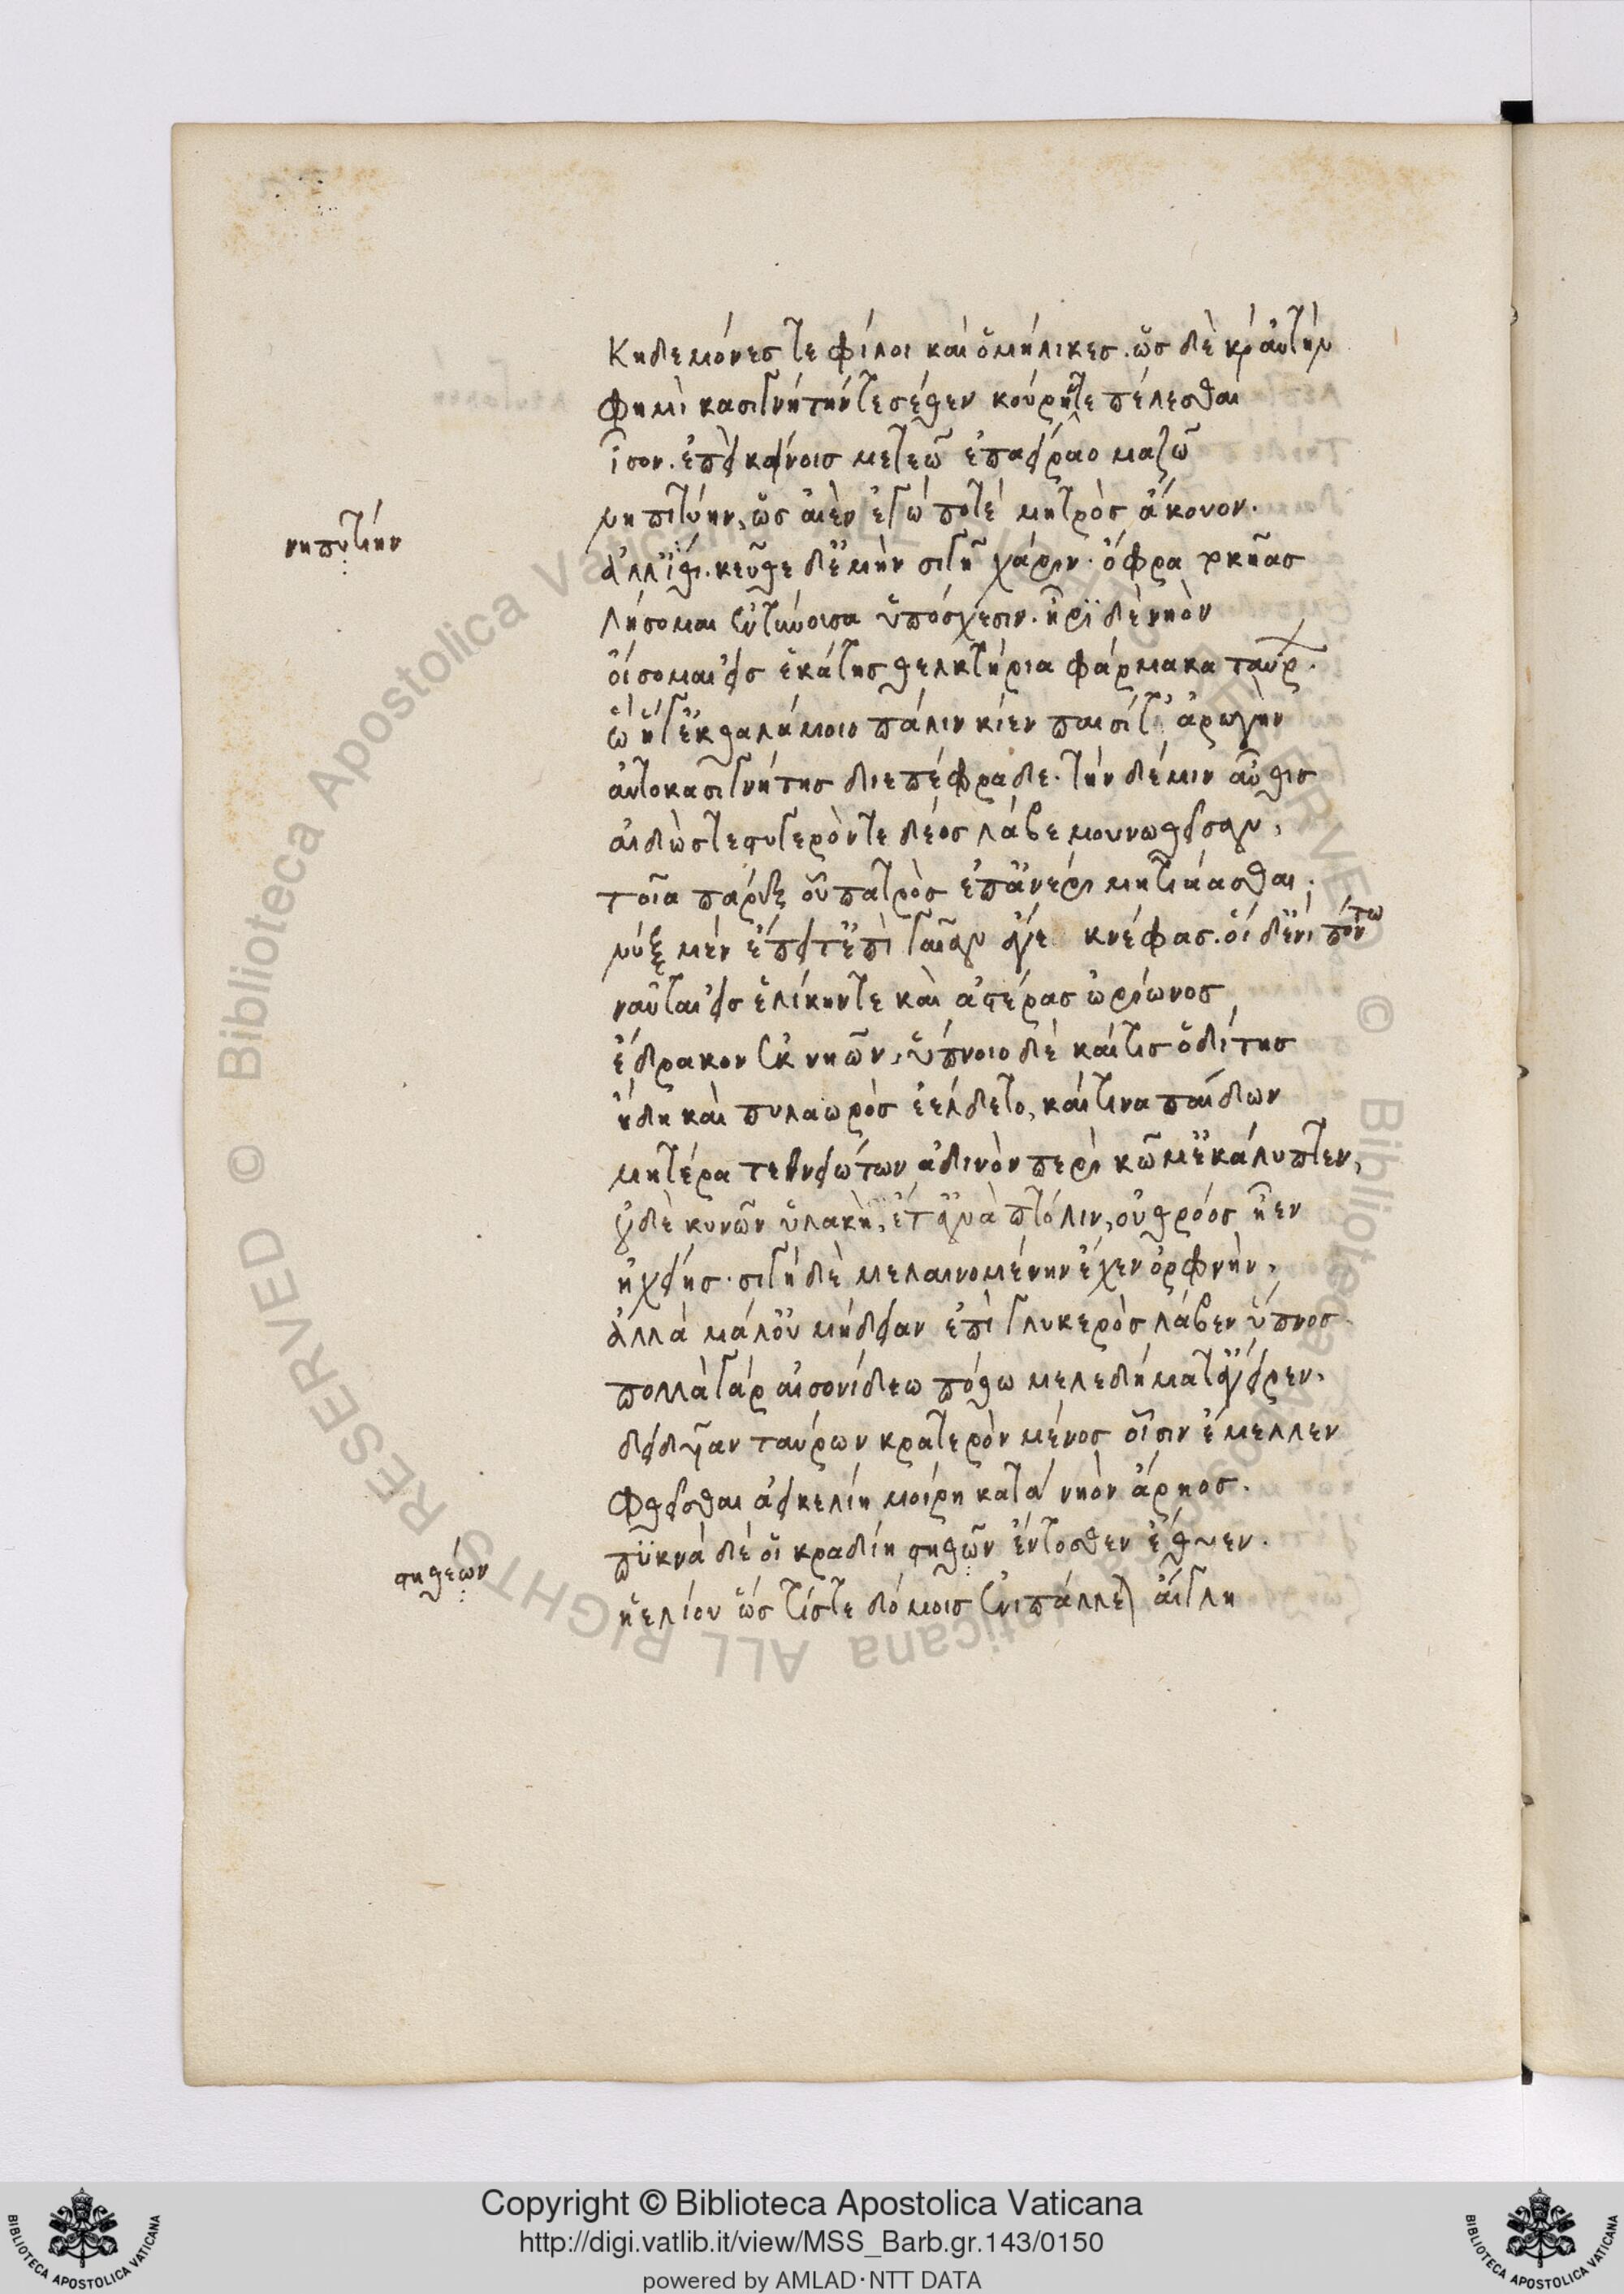 Κηδεμόνες τε φίλοι καὶ ὁμήλικες. ὣς δὲ κ̀ αὐτὴν
φημὶ κασιγνήτην τε σέθεν κούρην τε πέλεσθαι
ἶσον. ἐπεὶ κείνοις με τεῶ ἐπαείραο μαζῶ
νηπυτίην
νηπιτύην, ὡς αἰὲν ἐγώ ποτέ μητρὸς ἄκουον.
ἀλλ' ἴθι. κεῦθε δ' ἐμὴν σιγῆ χάριν. ὄφρα τοκῆας
λήσομαι ἐντύνουσα ὑπόσχεσιν. ἦρι δὲ νηὸν
οἴσομαι εἰς ἑκάτης θελκτήρια φάρμακα ταύρ.
ὣ ἥγ' ἐκ θαλάμοιο πάλιν κίεν παισί τ' ἀρωγὴν
αὐτοκασιγνήτης διεπέφραδε. τὴν δέ μιν αὖθις
αἰδώς τε στυγερόν τε δέος λάβε μουνωθεῖσαν,
τοῖα παρὲξ οὗ πατρὸς ἐπ' ἀνέρι μητιάασθαι.
νὺξ μὲν ἔπειτ' ἐπὶ γαῖαν ἄγε κνέφας. οἱ δ' ἐνὶ πόντω
ναῦται εἰς ἑλίκην τε καὶ ἀστέρας ὠρίωνος
ἔδρακον ἐκ νηῶν, ὕπνοιο δὲ καί τις ὁδίτης
ἤδη καὶ πυλαωρὸς ἐέλδετο, καί τινα παίδων
μητέρα τεθνεώτων ἀδινὸν περὶ κῶμ' ἐκάλυπτεν,
οὐδὲ κυνῶν ὑλακὴ, ἔτ' ἀνὰ πτόλιν, οὐ θρόος ἦεν
ἠχήεις. σιγὴ δὲ μελαινομένην ἔχεν ὀρφνὴν,
ἀλλὰ μάλ' οὐ μήδειαν ἐπὶ γλυκερὸς λάβεν ὕπνος.
πολλὰ γὰρ αἰσονίδεω πόθω μελεδήματ' ἔγειρεν.
δειδυῖαν ταύρων κρατερὸν μένος οἷσιν ἔμελλεν
φθεῖσθαι ἀεικελίη μοίρη κατά νηὸν ἄρηος.
πυκνὰ δέ οἱ κραδίη στηθῶν ἔντοσθεν ἔθυιεν.
στηθέων
ἠελίου ὥς τίς τε δόμοις ἐνιπάλλεται αἴγλη
Copyright © Biblioteca Apostolica Vaticana
http://digi.vatlib.it/view/MSS_Barb.gr.143/0150
powered by AMLAD·NTT DATA